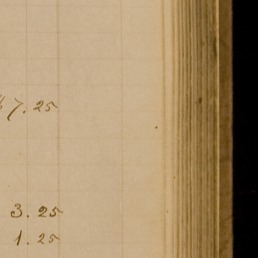 7.25
3.25
1.25